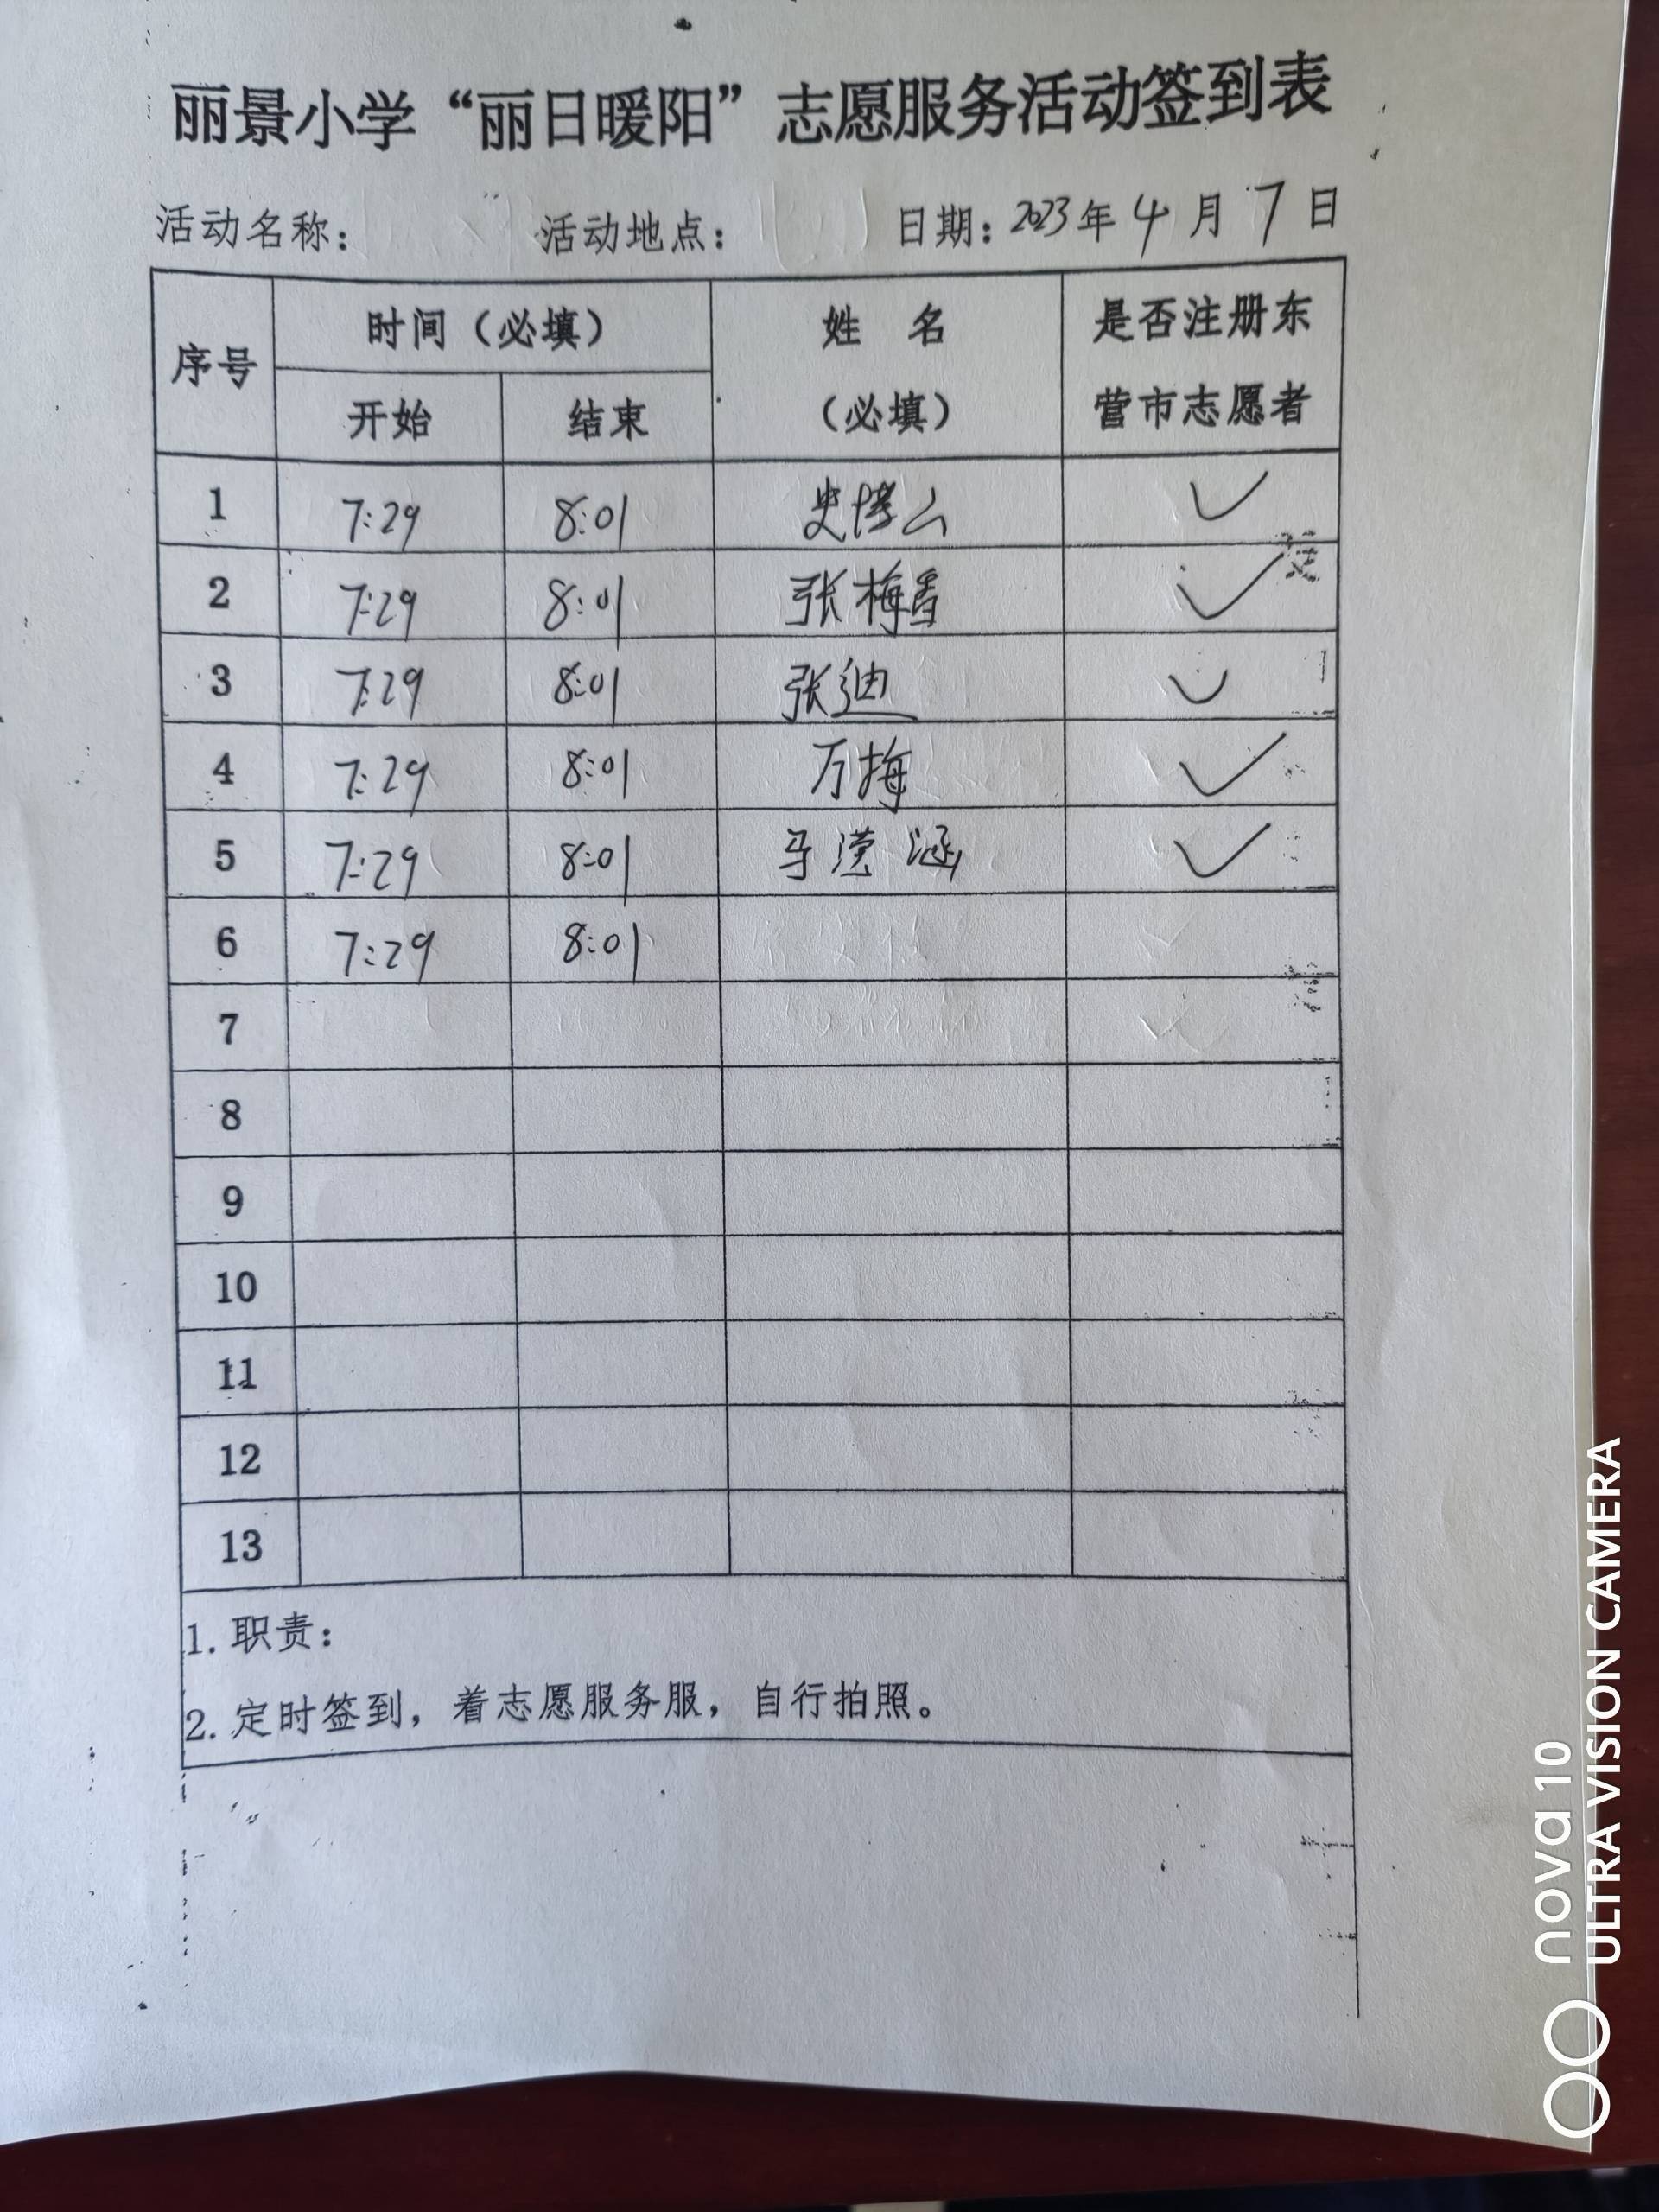 丽景小学“丽日暖阳”志愿服务活动签到表
活动名称： 活动地点： 日期：2023年4月7日
序号 时间（必填） 姓 名 （必填） 是否注册东营市志愿者
开始 结束
1 7:29 8:01 史 ✓
2 7:29 8:01 张梅香 ✓
3 7:29 8:01 张迪 ✓
4 7:29 8:01 万梅 ✓
5 7:29 8:01 涵 ✓
6 7:29 8:01
7
8
9
10
11
12
13
1. 职责：
2. 定时签到，着志愿服务服，自行拍照。
nova 10
ULTRA VISION CAMERA